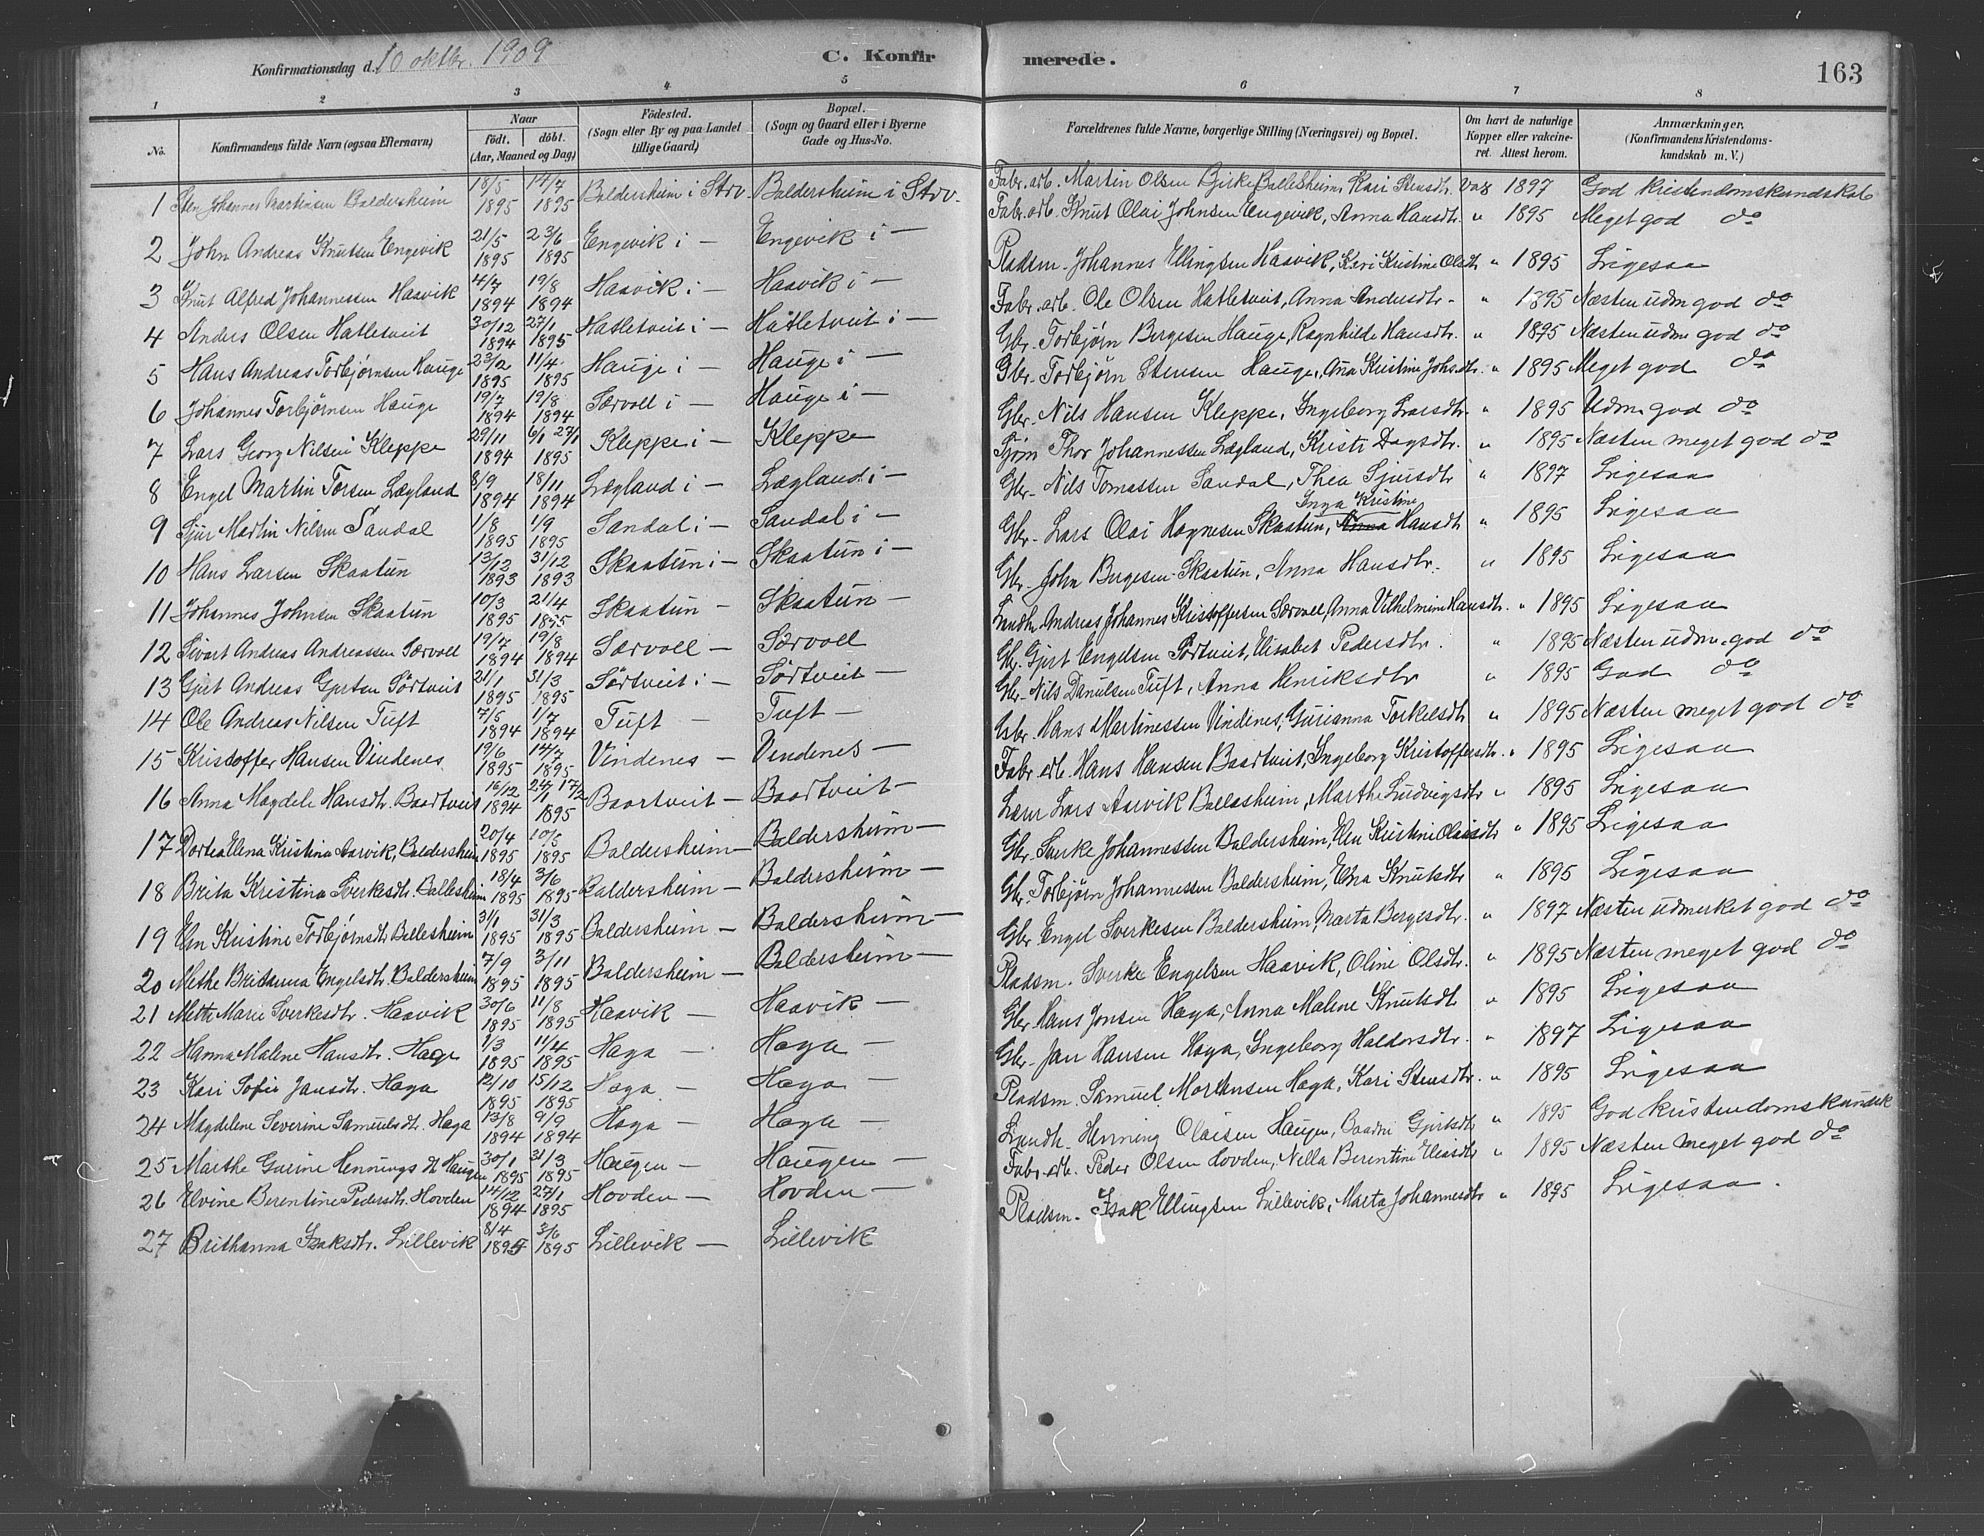 Konfirmationsdag d. 10 oktbr. 1909 C. Konfirmerede. 163
1 2 3 4 5 6 7 8
No. Konfirmandens fulde Navn (ogsaa Efternavn) Naar født. døbt. (Aar, Maaned og Dag) Födested. (Sogn eller By og paa Landet tillige Gaard) Bopæl. (Sogn og Gaard eller i Byerne Gade og Hus-No. Forældrenes fulde Navne, borgerlige Stilling (Næringsvei) og Bopæl. Om havt de naturlige Kopper eller vakcineret. Attest herom. Anmærkninger. (Konfirmandens Kristendomskundskab m. V.)
1 Sten Johannes Martinsen Baldersheim 18/5 1895 14/7 1895 Baldersheim i Strv. Baldersheim i Strv. Fabr. arb. Martin Olsen Bjirke Ballesheim, Kari Stensdtr. vac 1897 God kristendomskundskab
2 John Andreas Knutsen Engevik 21/5 1895 23/6 1895 Engevik i — Engevik i — Fabr. arb. Knut Olai Johnsen Engevik, Anna Hansdtr. " 1895 Meget god do
3 Knut Alfred Johannessen Haavik 4/7 1894 19/8 1894 Haavik i — Haavik i — Pladsm. Johannes Ellingsen Haavik, Kari Kristine Olsdtr " 1895 Ligesaa
4 Anders Olsen Hatletveit 30/12 1894 27/1 1895 Hatletveit i — Hatletveit i — Fabr. arb. Ole Olsen Hatletveit, Anna Andersdtr. " 1895 Næsten udm. god do
5 Hans Andreas Torbjørnsen Hauge 23/2 1895 11/4 1895 Hauge i — Hauge i — Gbr. Torbjørn Bergesen Hauge, Ragnhilde Hansdtr. " 1895 Næsten udm god do
6 Johannes Torbjørnsen Hauge 19/7 1894 19/8 1894 Særvoll i — Hauge i — Gbr. Torbjørn Stensen Hauge, Ana Kristine Johs.dtr. " 1895 Meget god do
7 Lars Georg Nilsen Kleppe 29/11 1894 6/1 27/1 1895 Kleppe i — Kleppe Gbr. Nils Hansen Kleppe, Ingeborg Larsdtr. " 1895 Udm. god do
8 Engel Martin Torsen Lægland 8/9 1894 18/11 1894 Lægland i — Lægland i — Sjøm Thor Johannessen Lægland, Kristi Dagsdtr. " 1895 Næsten meget god do
9 Sjur Martin Nilsen Sandal 1/8 1895 1/9 1895 Sandal i — Sandal i — Gbr. Nils Tomassen Sandal, Thea Sjursdtr " 1897 Ligesaa
10 Hans Larsen Skaatun 13/12 1893 31/12 1893 Skaatun i — Skaatun i — Gbr. Lars Olai Hagnesen Skaatun, Anna Inga Kristine Hansdtr " 1895 Ligesaa
11 Johannes Johnsen Skaatun 10/3 1895 21/4 1895 Skaatun — Skaatun — Gbr. John Bergesen Skaatun, Anna Hansdtr. " 1895 Ligesaa
12 Sivert Andreas Andreassen Særvoll 19/7 1894 19/8 1894 Særvoll — Særvoll Landh. Andreas Johannes Kristoffersen Særvoll, Anna Vilhelmine Hansdtr. " 1895 Ligesaa
13 Gjert Andreas Gjertsen Sørtveit 21/1 1895 31/3 1895 Sørtveit i — Sørtveit — Gbr. Gjert Engelsen Sørtveit, Elisabet Pedersdtr. " 1895 Næsten udm. god do
14 Ole Andreas Nilsen Tuft 7/5 1894 1/7 1894 Tuft — Tuft — Gbr. Nils Danielsen Tuft, Anna Henriksdtr " 1895 God do
15 Krisdoffer Hansen Vindenes 19/6 1895 14/7 1895 Vindenes — Vindenes — Gbr. Hans Martinessen Vindenes, Gurianna Torkelsdtr " 1895 Næsten meget god do
16 Anna Magdele Hansdtr. Baartveit 16/12 1894 24/1 17/2 1895 Baartveit — Baartveit — Fabr. arb. Hans Hansen Baartveit, Ingeborg Kristoffersdtr. " 1895 Ligesaa
17 Dortea Elena Kristina Aarvik, Baldersheim 20/4 1895 10/5 1895 Baldersheim — Baldersheim — Lærer Lars Aarvik Ballesheim, Marthe Ludvigsdtr " 1895 Ligesaa
18 Brita Kristina Sverkesdtr. Ballesheim 18/4 1895 3/6 1895 Baldersheim — Baldersheim — Gbr. Sverke Johannessen Baldersheim, Elen Kristine Olaisdtr " 1895 Ligesaa
19 Elen Kristine Torbjørnsdtr Ballesheim 31/1 1895 31/3 1895 Baldersheim — Baldersheim — Gbr. Torbjørn Johannessen Baldersheim, Elna Knutsdtr " 1895 Ligesaa
20 Methe Britanna Engelsdtr. Baldersheim 7/9 1895 3/11 1895 Baldersheim — Baldersheim — Gbr. Engel Sverkesen Baldersheim, Marta Bergesdtr. " 1897 Næsten udmerket god do
21 Mette Marie Sverkesdtr. Haavik 30/6 1895 11/8 1895 Haavik — Haavik — Pladsm. Sverke Engelsen Haavik, Oline Olsdtr. " 1895 Næsten meget god do
22 Hanna Malene Hansdtr. Haga 1/3 1895 11/4 1895 Haga — Haga — Gbr Hans Jonsen Haga, Anna Malene Knutsdtr " 1895 Ligesaa
23 Kari Sofie Jansdtr. Haga 12/10 1895 15/12 1895 Haga — Haga — Gbr. Jan Hansen Haga, Ingeborg Haldorsdtr. " 1897 Ligesaa
24 Magdelene Severine Samuelsdtr. Haga 13/8 1894 9/9 1894 Haga — Haga — Pladsm. Samuel Mortensen Haga, Kari Stensdtr. " 1895 Ligesaa
25 Marthe Gurine Hennings dt Haugen 30/1 1895 31/3 1895 Haugen — Haugen — Landh. Henning Olaisen Haugen, Gjertsdtr " 1895 God kristendomskundsk
26 Elvine Berentine Pedersdtr. Hovden 14/12 1894 27/1 1895 Hovden — Hovden — Fabr. arb. Peder Olsen Hovden, Nella Berentine Eliasdtr " 1895 Næsten meget god do
27 Brithanna Isaksdtr. Lillevik 8/4 1895 3/6 1895 Lillevik — Lillevik Pladsm. Isak Ellingsen Lillevik, Marta Johannesdtr " 1895 Ligesaa.